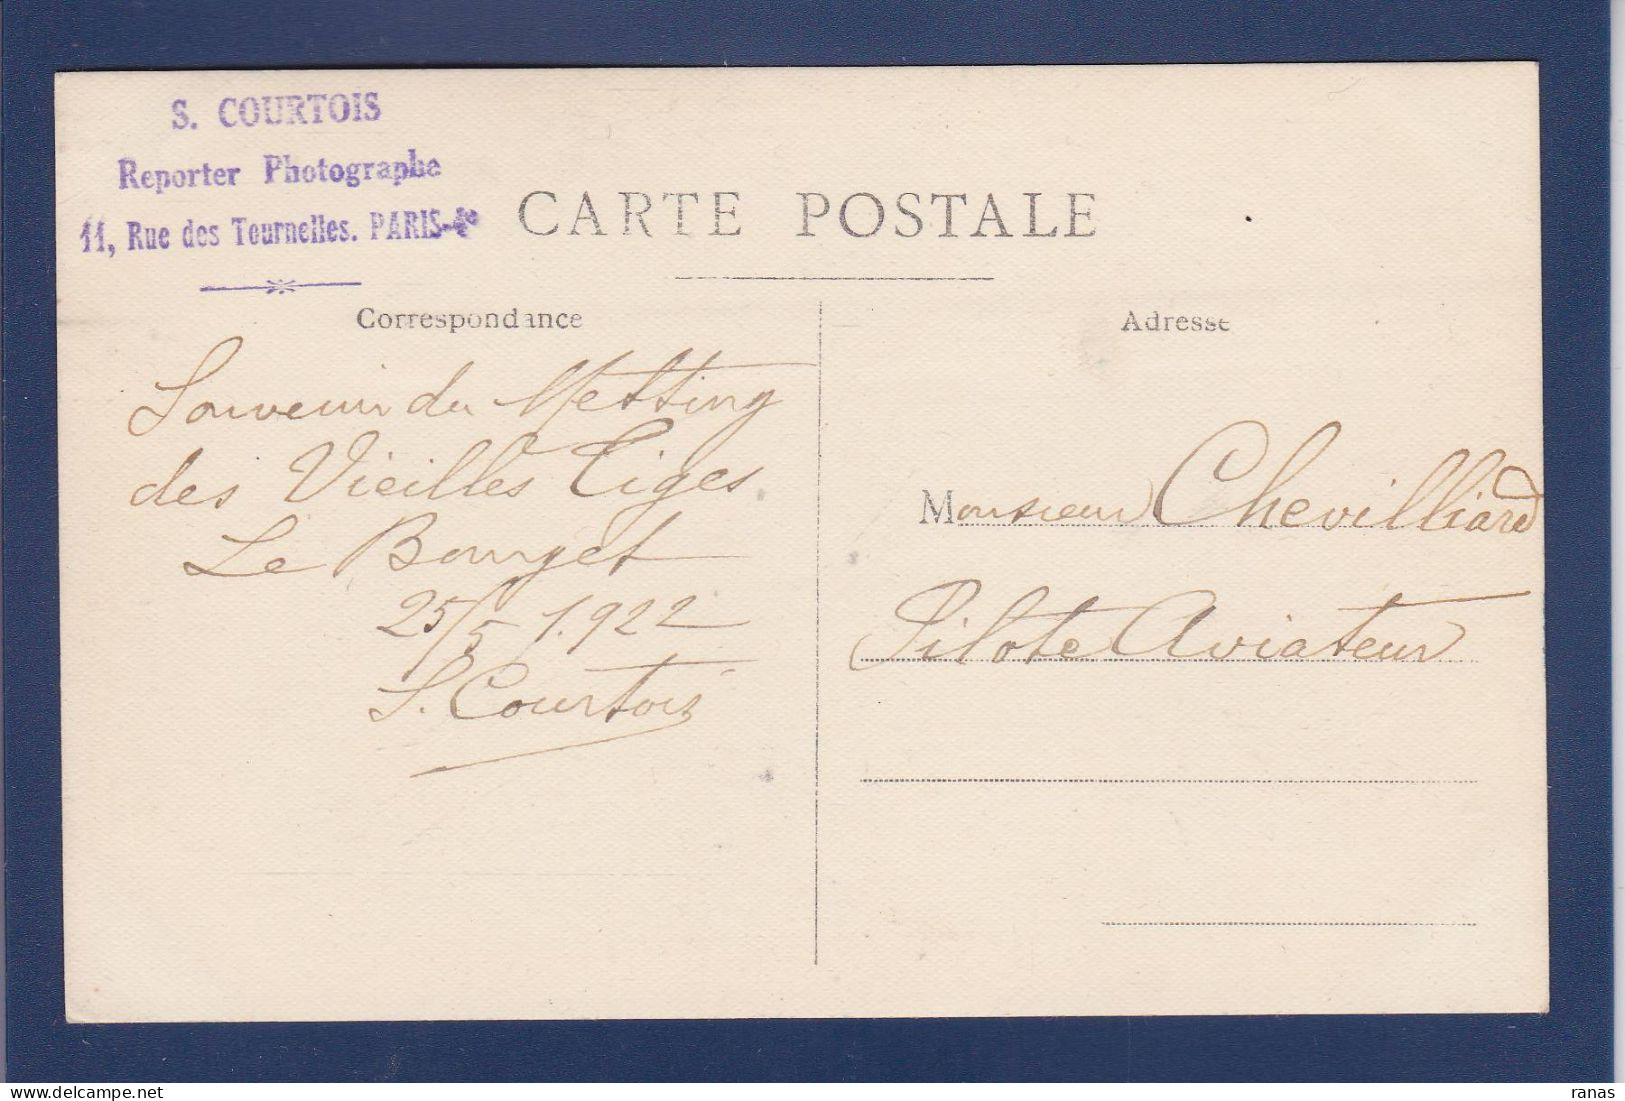 S. COURTOIS
Reporter Photographe
11, Rue des Tournelles. PARIS-4e
CARTE POSTALE
Correspondance
Adresse
Souvenir du Metting
des Vieilles Tiges
Le Bourget
25/5 1.922
S. Courtois
Monsieur Chevilliard
Pilote Aviateur
ranas